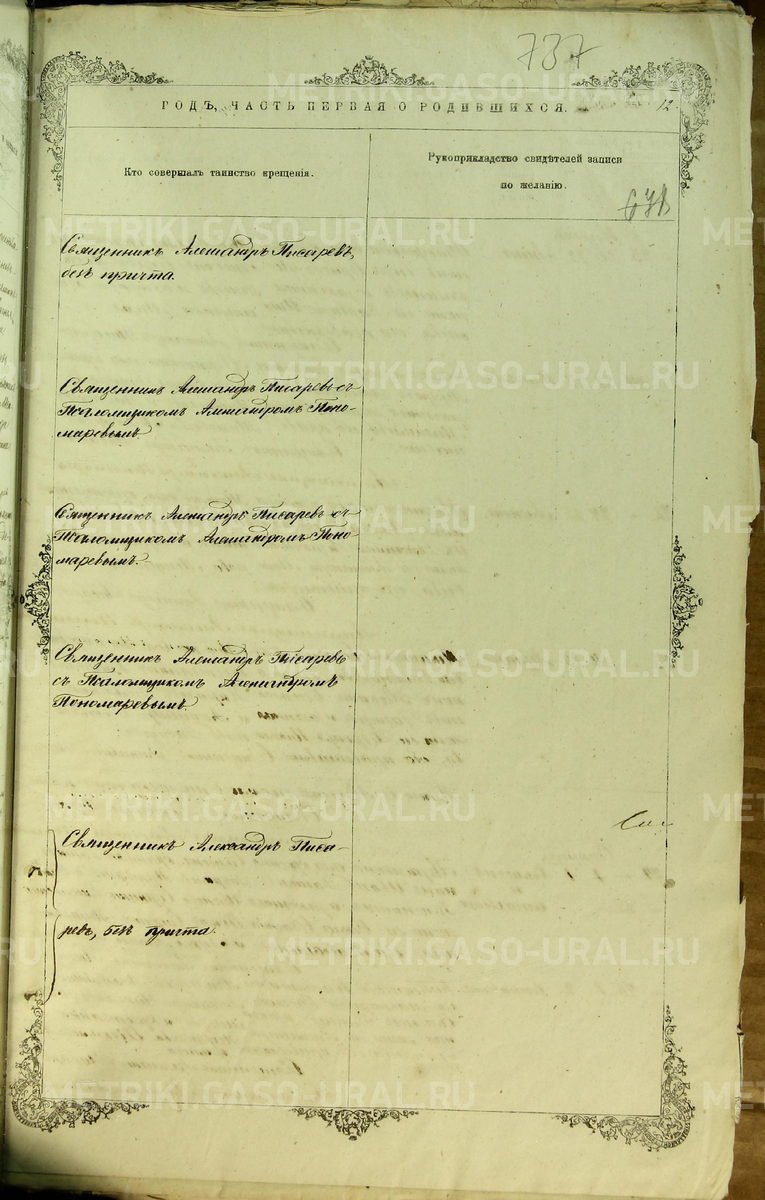 737
ГОДЪ, ЧАСТЬ ПЕРВАЯ О РОДИВШИХСЯ.
12
Кто совершалъ таинство крещенія.
Рукоприкладство свидѣтелей записи
по желанію.
Священникъ Александръ Писаревъ,
безъ причта.
Священникъ Александръ Писаревъ съ
Псаломщикомъ Александромъ Поно-
маревымъ
Священникъ Александръ Писаревъ съ
Псаломщикомъ Александромъ Поно-
маревымъ.
Священникъ Александръ Писаревъ
съ Псаломщикомъ Александромъ
Пономаревымъ.
Священникъ Александръ Писа-
ревъ, безъ причта.
METRIKI.GASO-URAL.RU